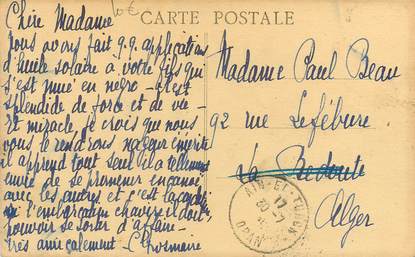 Chère Madame
CARTE POSTALE
nous avons fait q.q. applications
d'huile solaire à votre fils qui
s'est mué en negro - il est
splendide de force et de vie -
Et miracle, je crois que nous
vous le rendrons nageur émérite
il apprend tout seul il a tellement
envie de se promener en canoë
avec les autres et c'est la condition
l'embarquer chavire il doit
pouvoir se sortir d'affaire -
très amicalement
Madame Paul Beau
92 rue Lefébure
La Redoute
Alger
AIN-EL-TURCK
17
ORAN